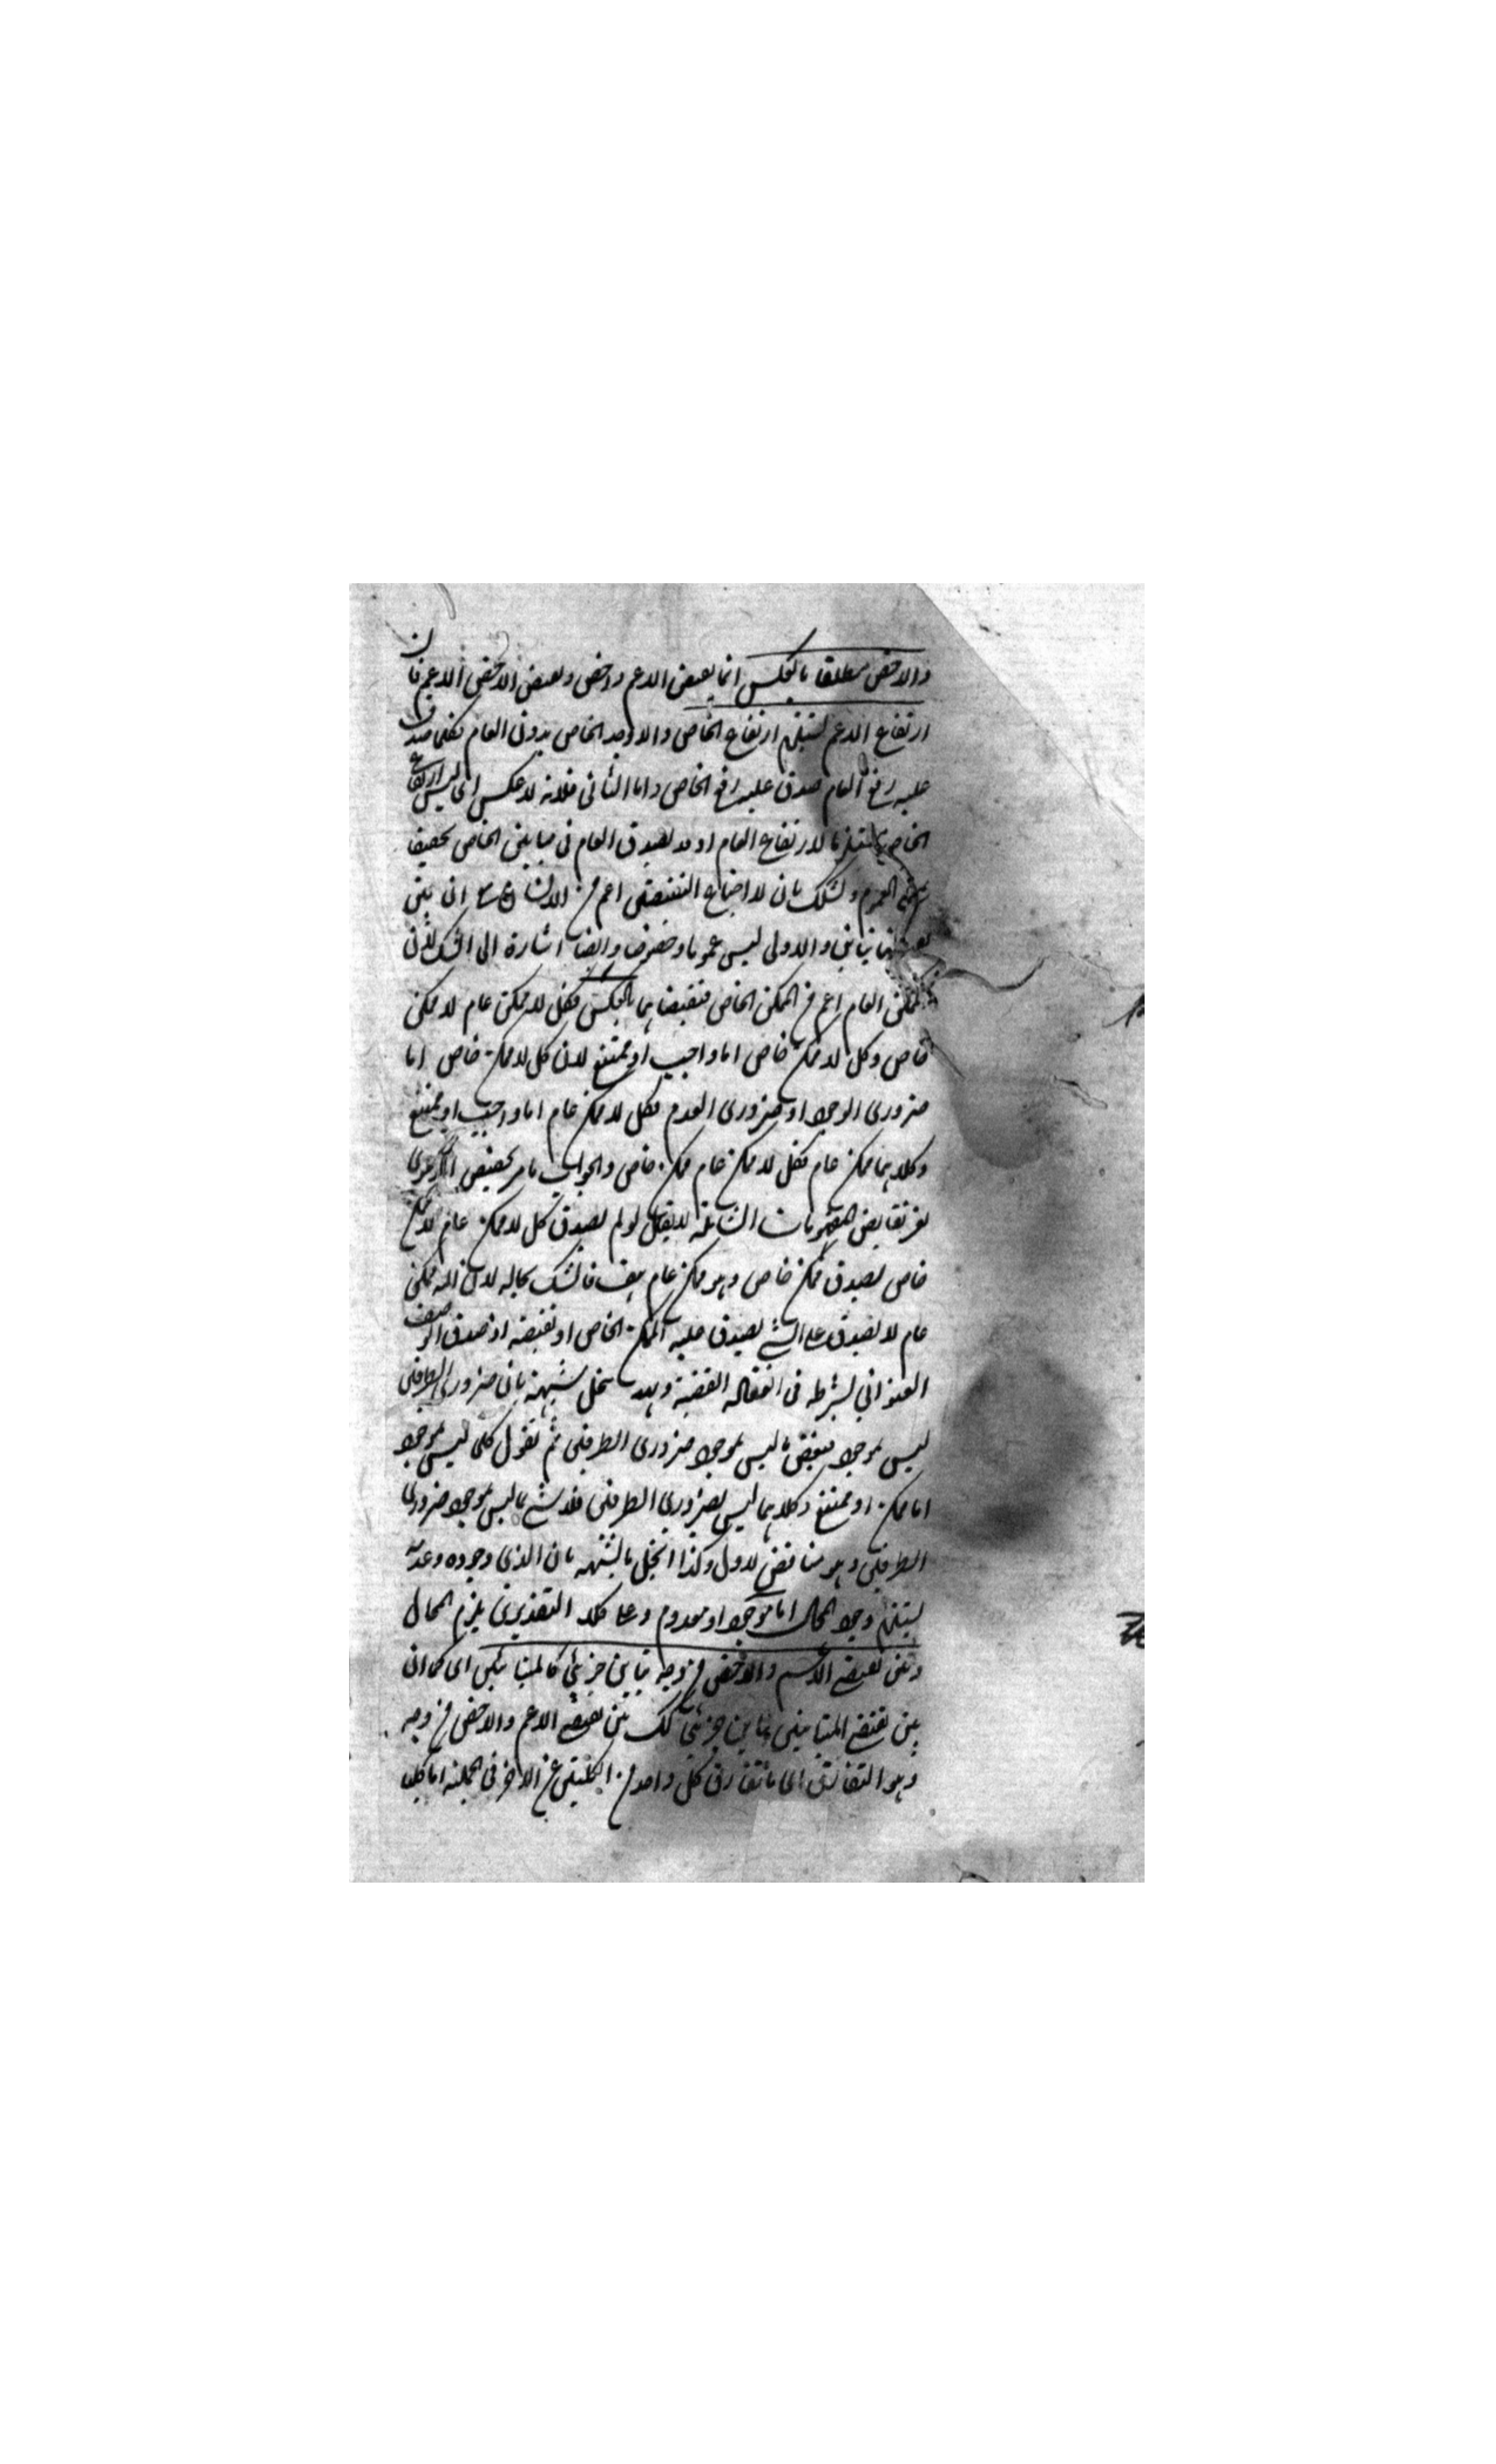 والاخص مطلقا بالعكس انما نقيض الاعم واخص ونقيض الاخص الاعم فان
ارتفاع الاعم يستلزم ارتفاع الخاص والا وجد الخاص بدون العام فكلما صدق
عليه رفع العام صدق عليه رفع الخاص واما الثاني فلانه لا عكس اي ليس ارتفاع
الخاص مستلزما لارتفاع العام اذ قد يصدق العام في مباين الخاص تحقيقا
العموم وشكك بان لا اجتماع النقيضين اعم من الانسان مع ان بين
تباين والاولى ليس عموما وخصوصا وايضا اشارة الى الشك لان
الممكن العام اعم من الممكن الخاص فنقيضاهما بالعكس فكل لا ممكن عام لا ممكن
خاص وكل لا ممكن خاص اما واجب او ممتنع لان كل لا ممكن خاص اما
ضروري الوجود او ضروري العدم فكل لا ممكن عام اما واجب او ممتنع
وكلاهما ممكن عام فكل لا ممكن عام ممكن خاص والجواب ما مر تخصيص الدعوى
بغير نقايض المفهومات الشاملة لا يقال لو لم يصدق كل لا ممكن عام لا ممكن
خاص لصدق ممكن خاص وهو ممكن عام هف فالشك بحاله لان اللا ممكن
عام لا يصدق على الشئ يصدق عليه الممكن الخاص او نقيضه اذ صدق الوصف
العنواني شرط في انعقاد القضية وبهذا ينحل شبهة بان ضروري الطرفين
ليس بموجود فبعض ما ليس بموجود ضروري الطرفين ثم نقول كل ما ليس بموجود
اما ممكن او ممتنع وكلاهما ليس بضروري الطرفين فلا شئ مما ليس بموجود ضروري
الطرفين وهو مناقض لاول وكذا انحل ما يشبهه بان الذي وجوده وعدمه
يستلزم وجود المحال اما موجود او معدوم وعلى كلا التقديرين يلزم المحال
وبين نقيضي الاعم والاخص من وجه تباين جزئي كالمتباينين اي كما ان
بين نقيضي المتباينين تباين جزئي كك بين نقيضي الاعم والاخص من وجه
وهو التفارق اي ما تفارق كل واحد من الكليتين عن الاخر في الجملة اما كليا